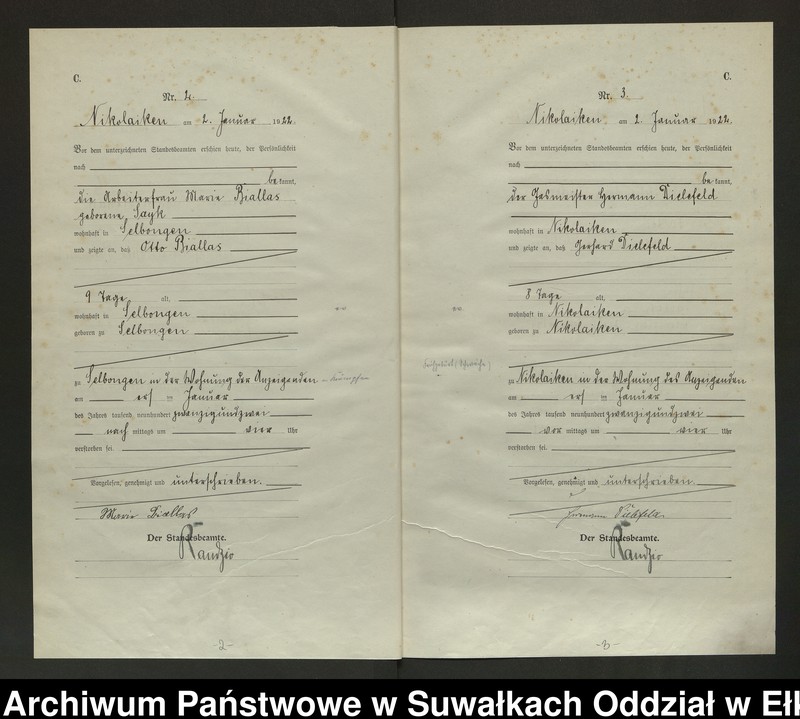 C.
Nr. 2.
Nikolaiken am 2. Januar 1922
Vor dem unterzeichneten Standesbeamten erschien heute, der Persönlichkeit
nach
be kannt,
die Arbeiterfrau Marie Biallas
geborene Sayk
wohnhaft in Selbongen
und zeigte an, daß Otto Biallas
9 Tage alt,
wohnhaft in Selbongen
geboren zu Selbongen
zu Selbongen in der Wohnung der Anzeigenden
am ersten Januar
des Jahres tausend neunhundert zwanzigundzwei
nach mittags um vier Uhr
verstorben sei.
Vorgelesen, genehmigt und unterschrieben.
Marie Biallas
Der Standesbeamte.
Randzio
-2-
C.
Nr. 3.
Nikolaiken am 2. Januar 1922
Vor dem unterzeichneten Standesbeamten erschien heute, der Persönlichkeit
nach
be kannt,
der Gasmeister Hermann Dielefeld
wohnhaft in Nikolaiken
und zeigte an, daß Gerhard Dielefeld
8 Tage alt,
wohnhaft in Nikolaiken
geboren zu Nikolaiken
zu Nikolaiken in der Wohnung des Anzeigenden
am ersten Januar
des Jahres tausend neunhundert zwanzigundzwei
vor mittags um vier Uhr
verstorben sei.
Vorgelesen, genehmigt und unterschrieben.
Hermann Dielefeld
Der Standesbeamte.
Randzio
-3-
Archiwum Państwowe w Suwałkach Oddział w Ełk